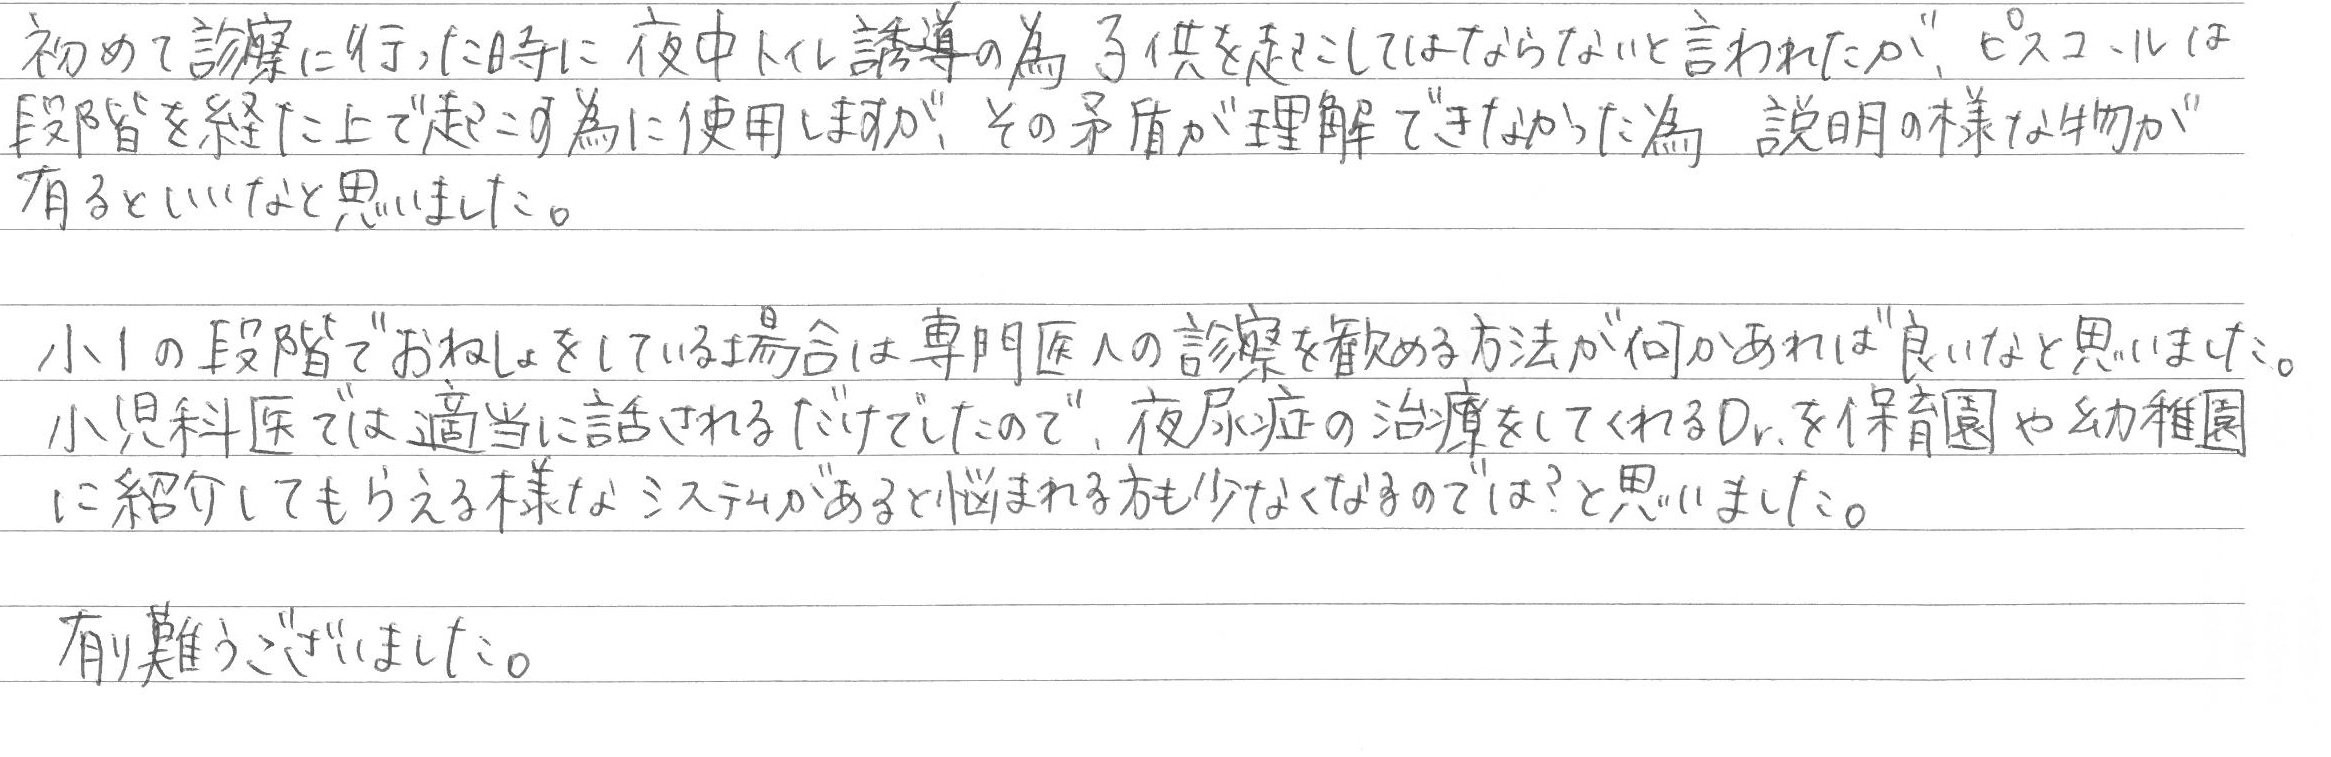 初めて診察に行った時に 夜中トイレ誘導の為 子供を起こしてはならないと言われたが、ピスコールは
段階を経た上で起こす為に使用しますが、その矛盾が理解できなかった為 説明の様な物が
有るといいなと思いました。
小1の段階でおねしょをしている場合は専門医への診察を歓める方法が何かあれば良いなと思いました。
小児科医では適当に話されるだけでしたので、夜尿症の治療をしてくれるDr.を保育園や幼稚園
に紹介してもらえる様なシステムがあると悩まれる方も少なくなるのでは?と思いました。
有り難うございました。